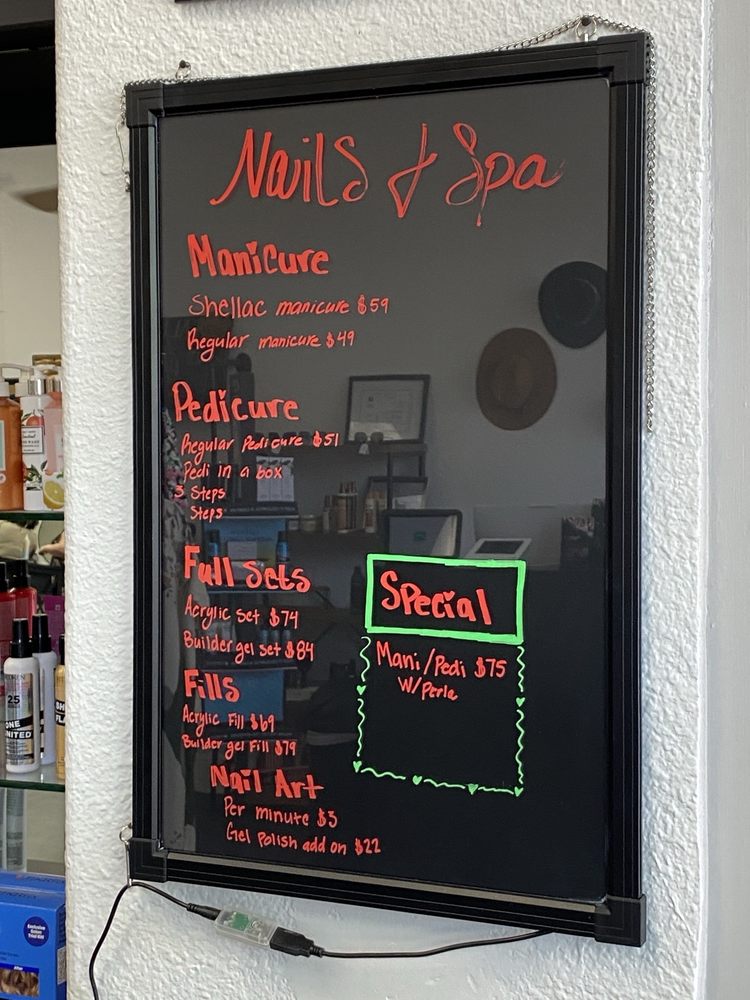 Nails & Spa
Manicure
Shellac manicure $59
Regular manicure $49
Pedicure
Regular Pedicure $51
Pedi in a box
3 Steps
Steps
Full Sets
Acrylic set $74
Builder gel set $84
Fills
Acrylic Fill $69
Builder gel Fill $79
Nail Art
Per minute $3
Gel Polish add on $22
Special
Mani/Pedi $75
W/Perla
25
ONE
UNITED